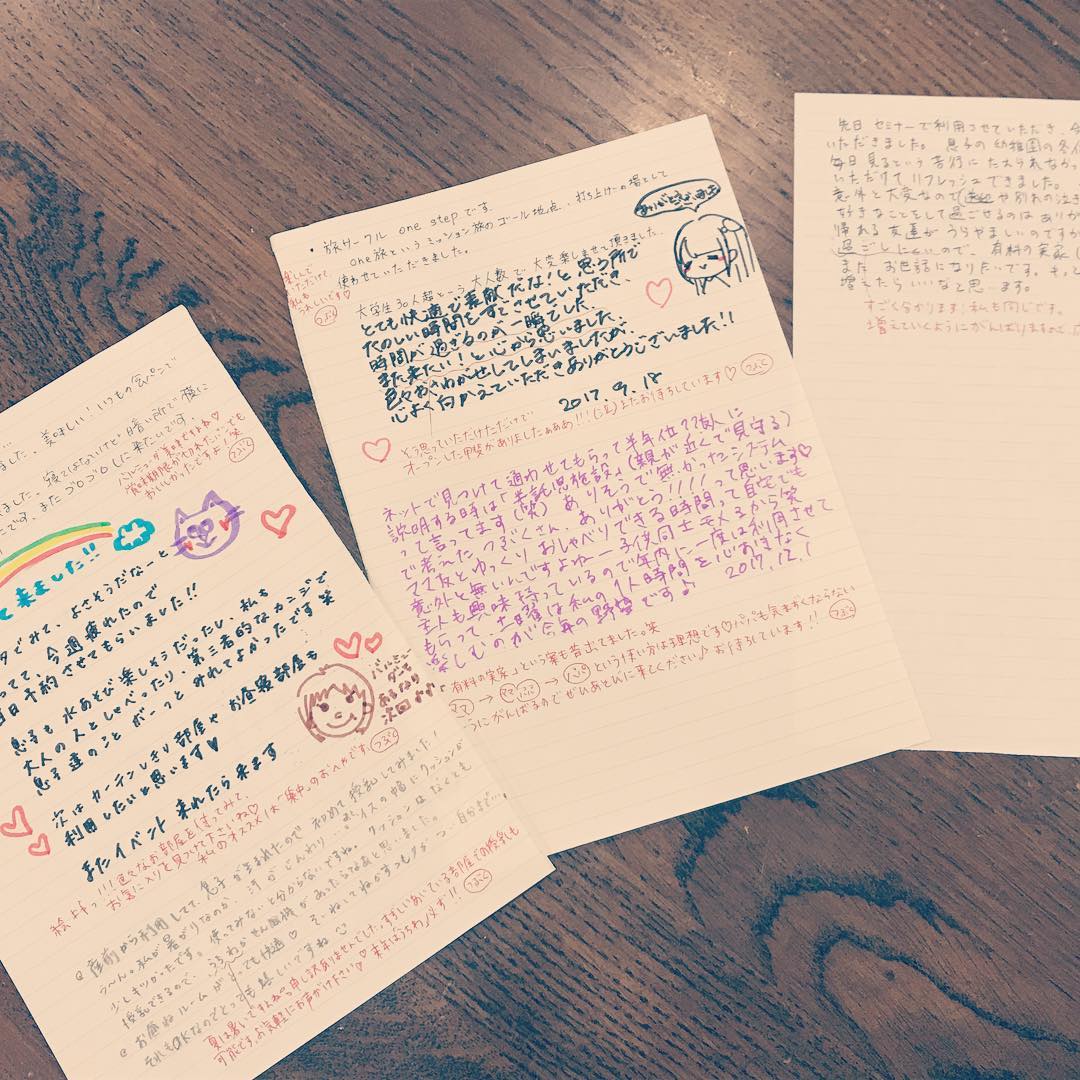 美味しい!いつもの食パンで
ました。寝てはないけど暗い所で横に
です。またゴロゴロしに来たいです。
バルミューダが美味すぎますね
賞味期限が切れていても
おいしかったですよ 笑 つぶぐ
て来ました!!
タでみて、よさそうだなーと
ってて、今週疲れたので
当日予約させてもらいました!!
息子も水あそび楽しそうだったし、私も
大人の人としゃべったり、第三者的なカンジで
息子達のことボーっとみれてよかったです 笑
バルミューダー
あるなり
次回
次はカーテンしきり部屋やお昼寝部屋も
利用したいと思います♥
またイベント来れたら来ます
!!!色々なお部屋を使ってみて、
お気に入りを見つけて下さいね♡
私のオススメは「集中」のおへやです。
産前から利用してて、息子が生まれたので初めて授乳してみました!
う〜ん。私が暑がりなのか、汗がじんわり。
少しキツかったです。使ってみないと分からないですね。
お昼ねルームが
それもOKなのでとっても嬉しいですね
夏は暑いですよね 申し訳ありませんでした。すずしいあいている部屋での授乳も
可能です。お気軽にお声がけ下さい♡ 来年はうちわ必す!!
・旅サークル one stepです。
one旅というミッション旅のゴール地点、打ち上げの場として
使わせていただきました。
大学生30人超という大人数で、大変楽しませて頂きました。
とても快適で素敵だな!と思う所で
たのしい時間をすごさせていただき、
時間が過ぎるのが一瞬でした。
また来たい!と心から思いました。
色々おさわがせしてしまいましたが、
心よく向かえていただきありがとうございました!!
2017.9.18
そう思っていただけただけで
オープンした甲斐がありましたぁぁぁ!!!(泣)またお待ちしています♡
ネットで見つけて通わせてもらって半年位??友人に
説明する時は「半託児施設」(親が近くで見守る)
って言ってます(笑)ありそうで無かったシステム
で考えたつぶぐさん、ありがとう!!!!って思います♥
ママ友とゆっくりおしゃべりできる時間って自宅でも
意外と無いんですよねー子供同士モメるから笑
主人も興味持っているので年内に一度は利用させて
もらって、土曜は私の1人時間を心おきなく
楽しむのが今年の野望です♪
2017.12.1
「有料の実家」という案も昔出てました。笑
ママ → ママ パパ → パパ という使い方は理想です♡パパも気まずくならない
ようにがんばるのでぜひあそびに来てください♪ お待ちしています!!
先日セミナーで利用させていただき、今
いただきました。息子の幼稚園の冬休
毎日見るという苦行にたえられなかっ
いただけてリフレッシュできました。
意外と大変なので
好きなことをして過ごせるのはありが
帰れる友達がうらやましいのですが
過ごしにくいので、有料の実家
また お世話になりたいです。もっと
増えたらいいなと思います。
すごく分かります!私も同じです。
増えていくようにがんばりますね